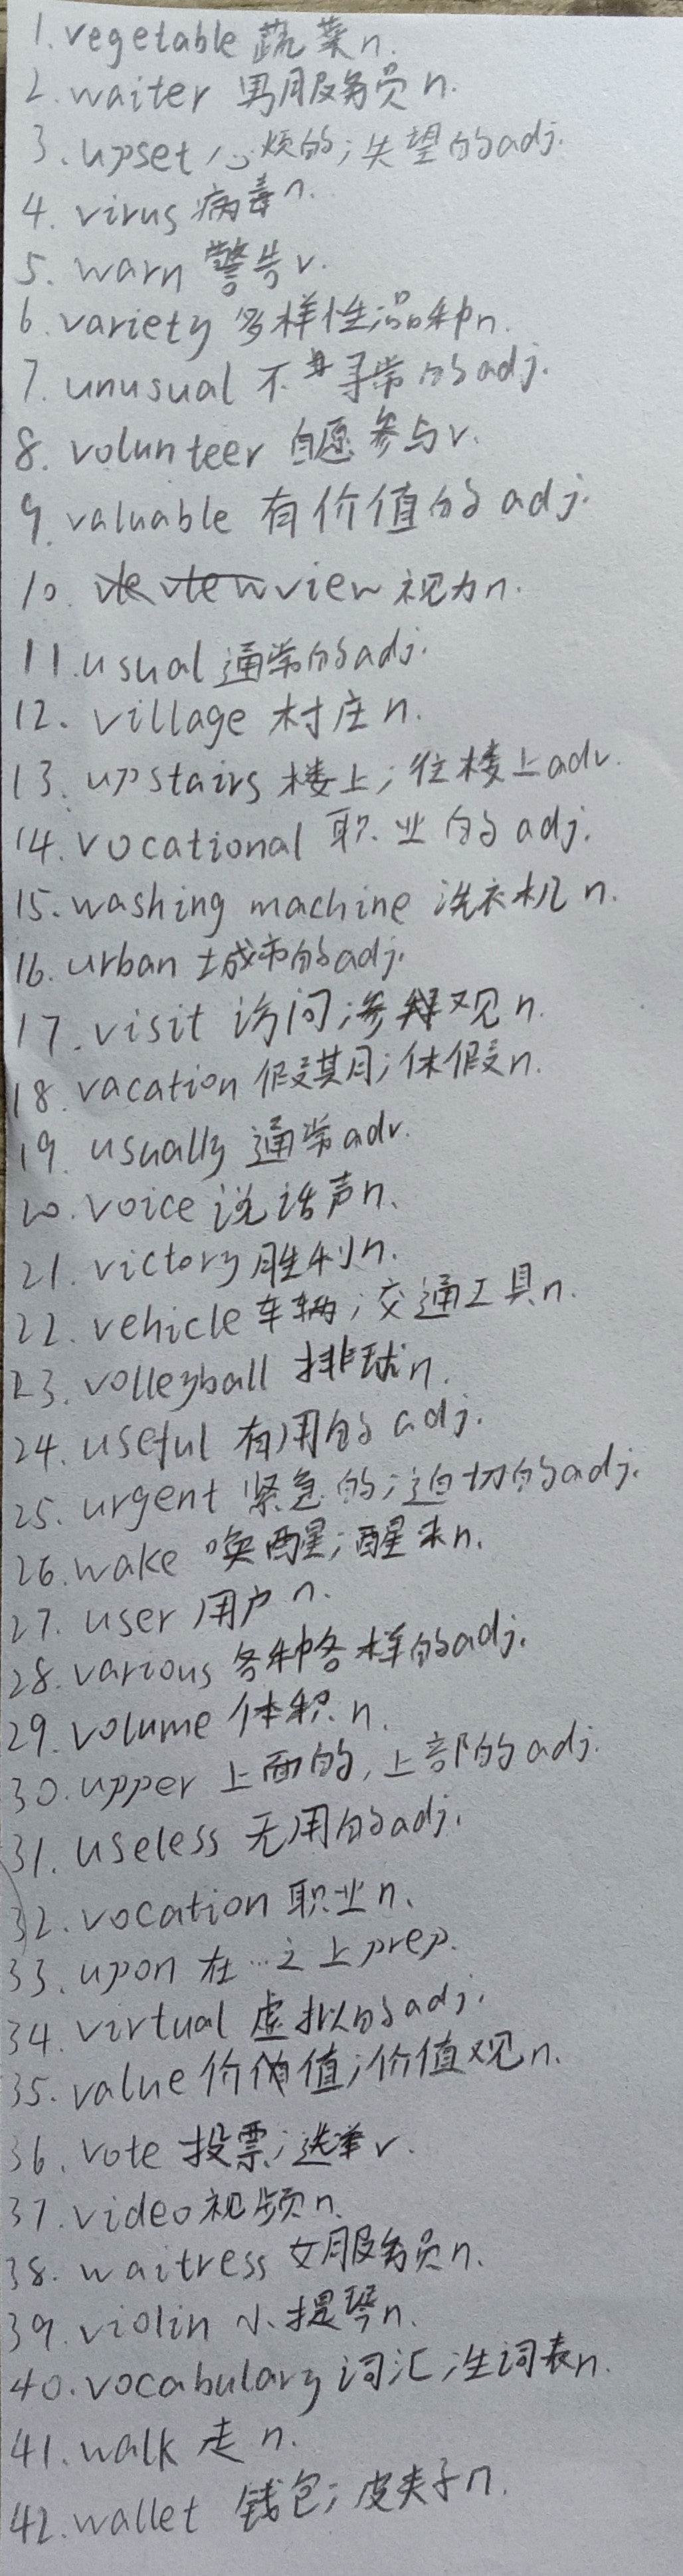 1. vegetable 蔬菜n.
2. waiter 男服务员n.
3. upset 心烦的;失望的adj.
4. virus 病毒n.
5. warn 警告v.
6. variety 多样性;品种n.
7. unusual 不寻常的adj.
8. volunteer 自愿参与v.
9. valuable 有价值的adj.
10. view 视力n.
11. usual 通常的adj.
12. village 村庄n.
13. upstairs 楼上;往楼上adv.
14. vocational 职业的adj.
15. washing machine 洗衣机n.
16. urban 城市的adj.
17. visit 访问;参观n.
18. vacation 假期;休假n.
19. usually 通常adv.
20. voice 说话声n.
21. victory 胜利n.
22. vehicle 车辆;交通工具n.
23. volleyball 排球n.
24. useful 有用的adj.
25. urgent 紧急的;迫切的adj.
26. wake 唤醒;醒来n.
27. user 用户n.
28. various 各种各样的adj.
29. volume 体积n.
30. upper 上面的,上部的adj.
31. useless 无用的adj.
32. vocation 职业n.
33. upon 在…之上prep.
34. virtual 虚拟的adj.
35. value 价值;价值观n.
36. vote 投票;选举v.
37. video 视频n.
38. waitress 女服务员n.
39. violin 小提琴n.
40. vocabulary 词汇;生词表n.
41. walk 走n.
42. wallet 钱包;皮夹子n.